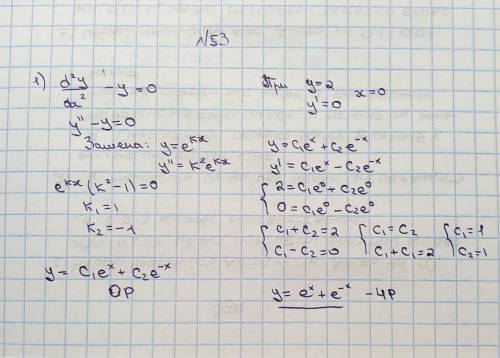 №53
1) d²y/dx² - y = 0
y'' - y = 0
Замена: y = e^{kx}
y'' = k²e^{kx}
e^{kx}(k² - 1) = 0
k₁ = 1
k₂ = -1
y = C₁e^x + C₂e^{-x}
ОР
При y = 2
y' = 0 x = 0
y = C₁e^x + C₂e^{-x}
y' = C₁e^x - C₂e^{-x}
{ 2 = C₁e⁰ + C₂e⁰
0 = C₁e⁰ - C₂e⁰
{ C₁ + C₂ = 2 { C₁ = C₂ { C₁ = 1
C₁ - C₂ = 0 C₁ + C₁ = 2 C₂ = 1
y = e^x + e^{-x} - ЧР